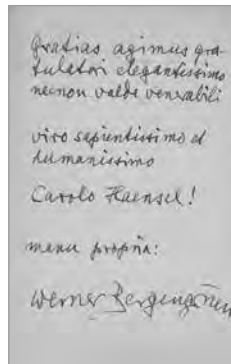 Gratias agimus gra-
tulatori elegantissimo
necnon valde venerabili
viro sapientissimo et
humanissimo
Carolo Haensel!
manu propria:
Werner Bergengruen